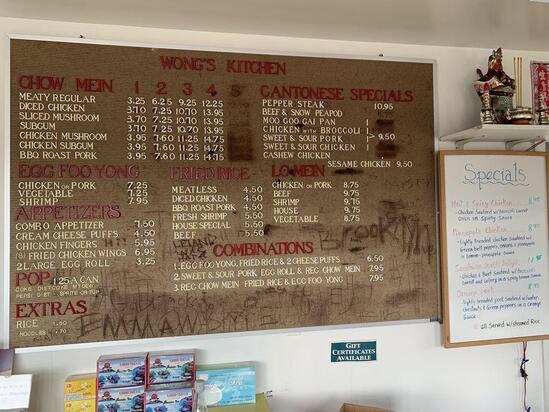 WONG'S KITCHEN
CHOW MEIN 1 2 3 4 5
MEATY REGULAR 3.25 6.25 9.25 12.25
DICED CHICKEN 3.70 7.25 10.70 13.95
SLICED MUSHROOM 3.70 7.25 10.70 13.95
SUBGUM 3.70 7.25 10.70 13.95
CHICKEN MUSHROOM 3.95 7.60 11.25 14.75
CHICKEN SUBGUM 3.95 7.60 11.25 14.75
BBQ ROAST PORK 3.95 7.60 11.25 14.75
EGG FOO YONG
CHICKEN OR PORK 7.25
VEGETABLE 7.25
SHRIMP 7.95
APPETIZERS
COMBO APPETIZER 7.50
CREAM CHEESE PUFFS 4.50
CHICKEN FINGERS 5.95
(8) FRIED CHICKEN WINGS 6.95
2 LARGE EGG ROLL 3.25
POP 1.25 A CAN
COKE DIET COKE
PEPSI DIET SPRITE OR
EXTRAS
RICE
NOODLES
FRIED RICE
MEATLESS 4.50
DICED CHICKEN 4.50
BBQ ROAST PORK 4.50
FRESH SHRIMP 5.50
HOUSE SPECIAL 5.50
BEEF 5.50
CANTONESE SPECIALS
PEPPER STEAK 10.95
BEEF & SNOW PEAPOD
MOO GOO GAI PAN
CHICKEN WITH BROCCOLI
SWEET & SOUR PORK 9.50
SWEET & SOUR CHICKEN
CASHEW CHICKEN
SESAME CHICKEN 9.50
LO MEIN
CHICKEN OR PORK 8.75
BEEF 9.75
SHRIMP 9.75
HOUSE 9.75
VEGETABLE 8.75
COMBINATIONS
1. EGG FOO YONG, FRIED RICE & 2 CHEESE PUFFS 6.50
2. SWEET & SOUR PORK EGG ROLL & REG CHOW MEIN 7.95
3. REG CHOW MEIN FRIED RICE & EGG FOO YONG 7.95
Specials
Hot & Spicy Chicken
Pineapple Chicken
Lightly breaded chicken w/
Green bell peppers, onions & pineapple
Orange peel
All Served w/ steamed Rice
GIFT
CERTIFICATES
AVAILABLE